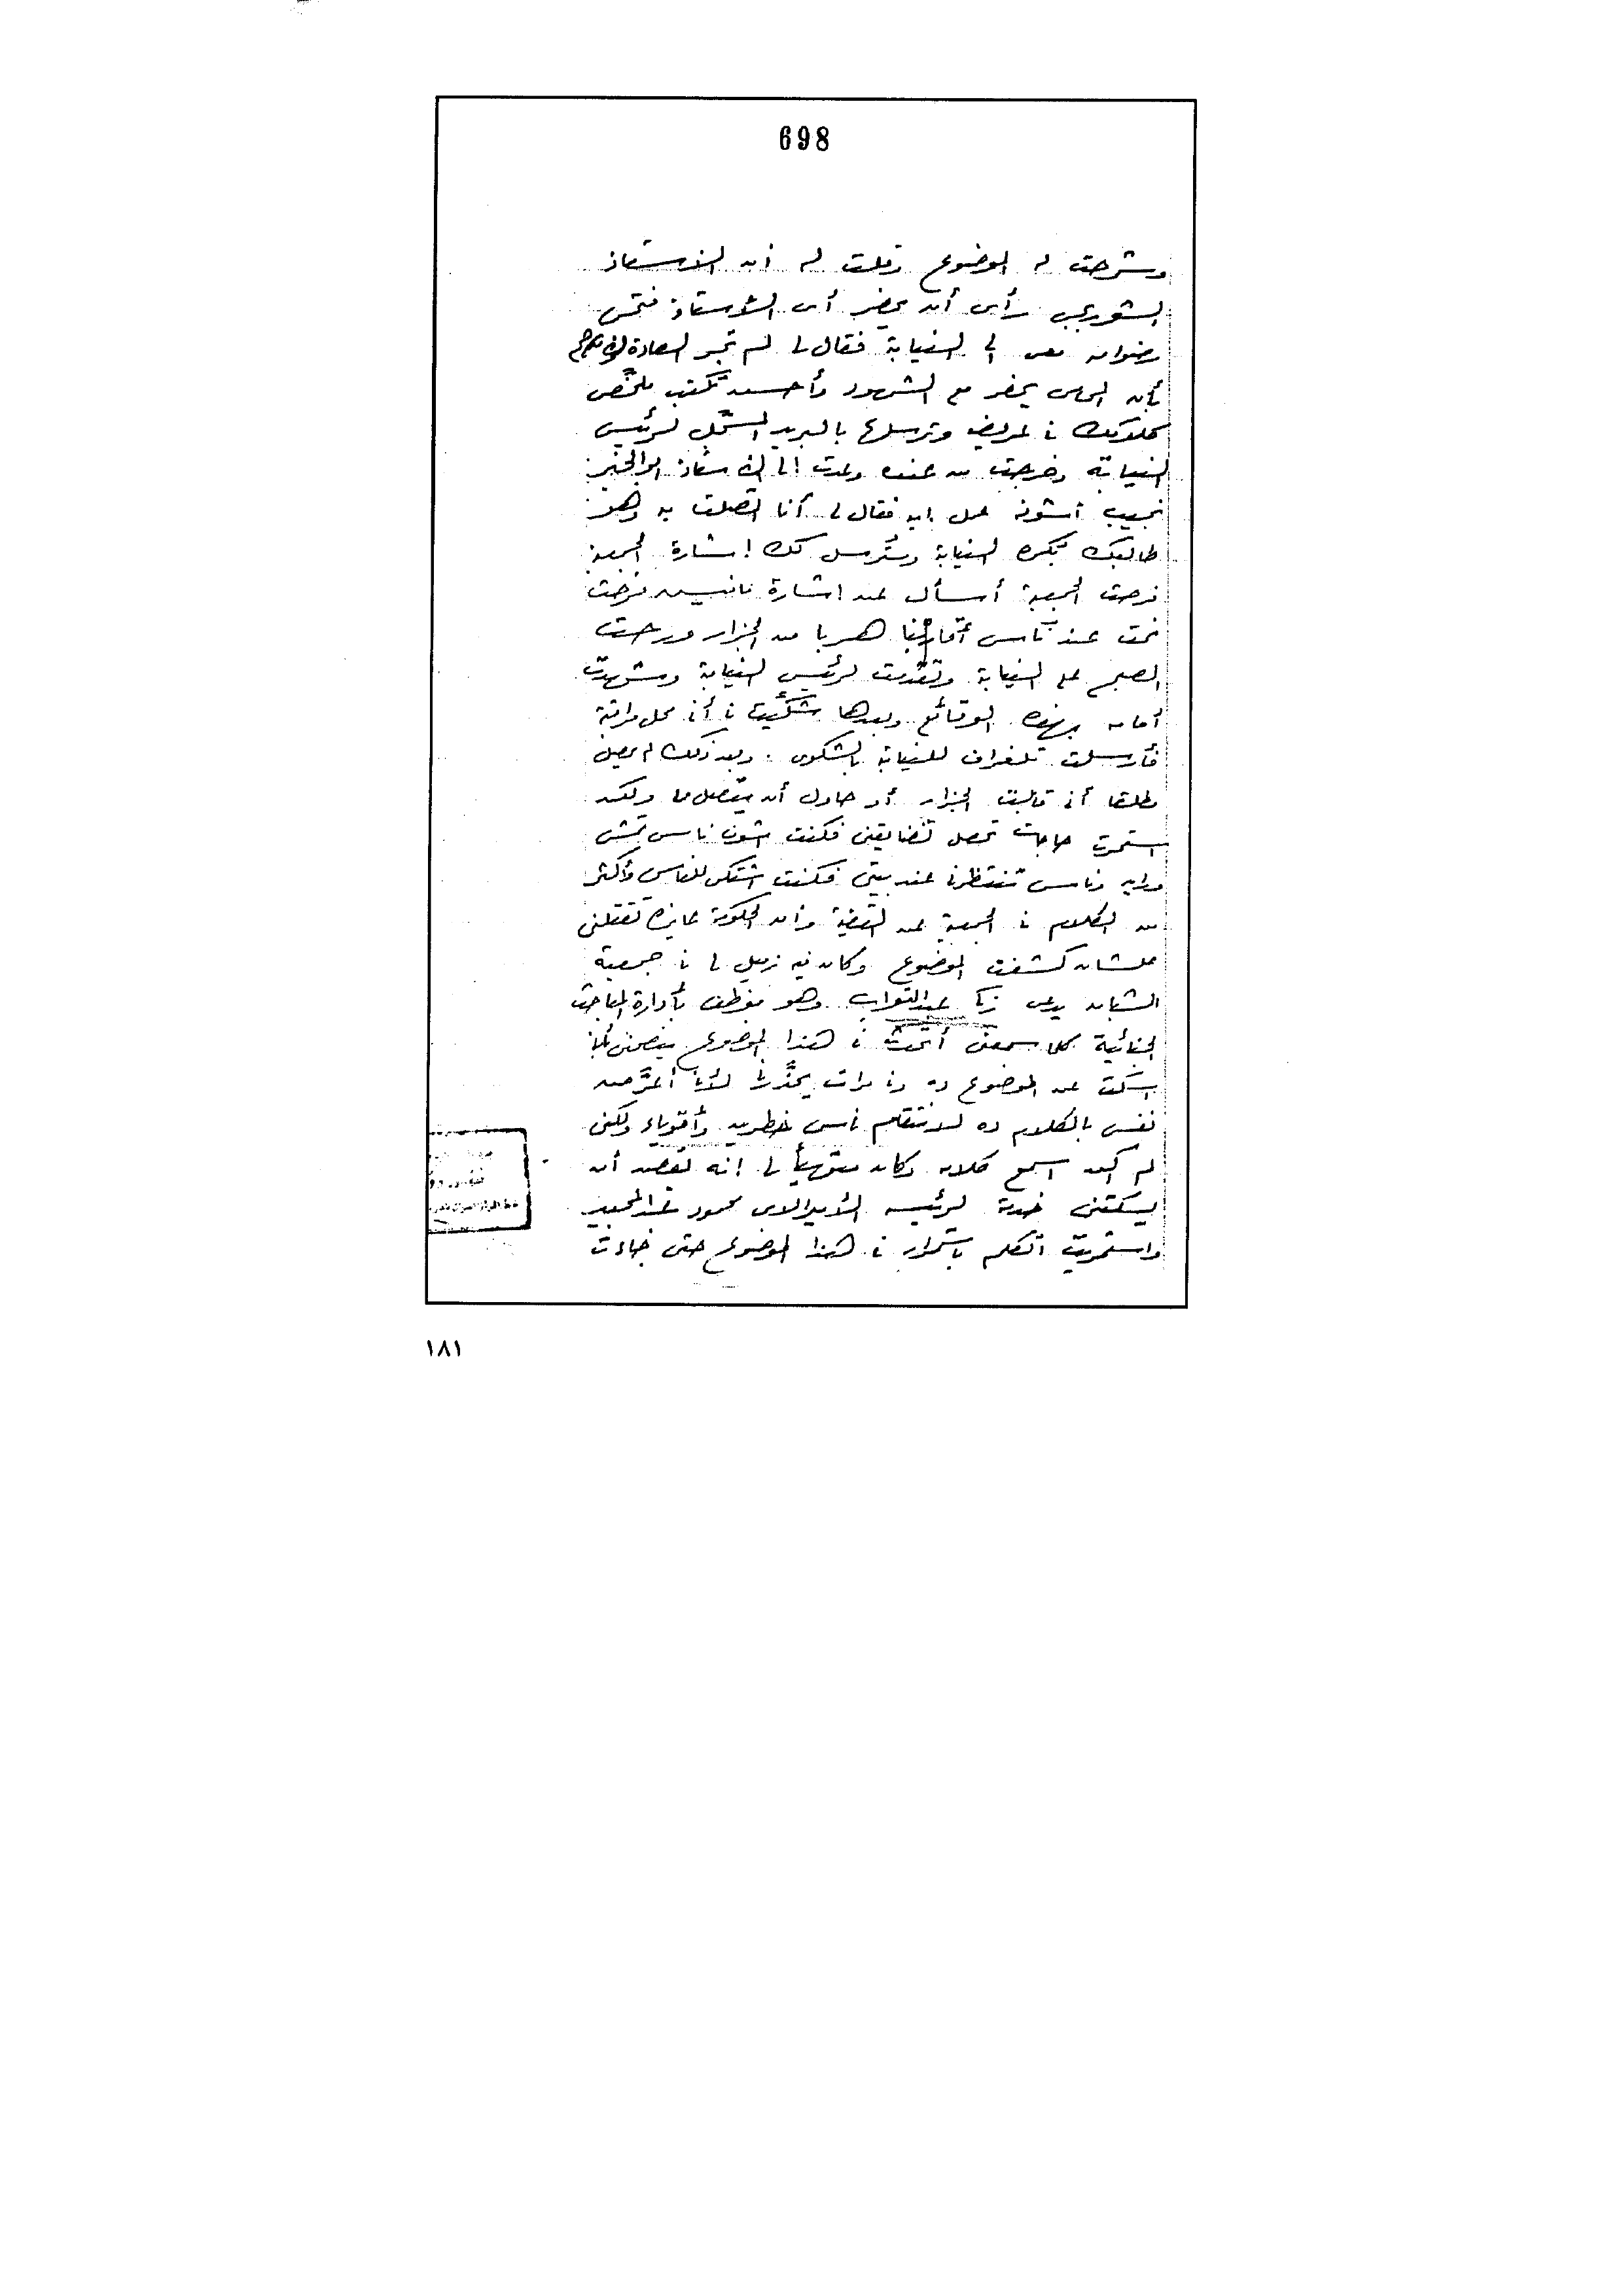 698
وشرحت له الموضوع وقلت له أن الأستاذ
الشوربجى رأى أن يحضر أى الأستاذ فتحى
رضوان معى الى النيابة فقال لى لم تجر العادة
بأن المحامى يحضر مع الشهود وأحسن تكتب ملخص
كلامك فى عريضة وترسلها بالبريد المسجل لرئيس
النيابة وخرجت من عنده وعدت الى الأستاذ ابو الخير
نجيب أشوفه عمل ايه فقال لى أنا اتصلت به وهو
طالبك بكره النيابة وسترسل لك إشارة الجمعية
فرحت الجمعية أسأل عن اشارة مافيش فرحت
نمت عند ناس أقاربنا هربا من الجزار ورحت
الصبح على النيابة وتقدمت لرئيس النيابة وشهدت
أمامه بهذه الوقائع وبعدها شكيت فى أنى محل مراقبة
فأرسلت تلغراف للنيابة بالشكوى . وبعد ذلك لم يحصل
مطلقا أنى قابلت الجزار أو حاول أن يتصل بى ولكن
استمرت حاجات تحصل تضايقنى فكنت اشوف ناس تمشى
ورايه وناس تنتظرنى عند بيتى فكنت اشتكى للناس وأكثر
من الكلام فى الجمعية عن القضية وأن الحكومة عايزه تقتلنى
علشان كشفت الموضوع وكان فيه زميل لى فى جمعية
الشبان يدعى زكى عبد التواب وهو موظف بأدارة المباحث
الجنائية كلما سمعنى أتحدث فى هذا الموضوع ينصحنى بأن
اسكت عن الموضوع ده وفى مرات يحذرنى لأنى أعرض
نفسى بالكلام ده لانتقام ناس خطرين وأقوياء ولكنى
لم أكن اسمع كلامه وكان متهيأ لى إنه يقصد أن
يسكتنى خدمة لرئيسه الأميرالاى محمود عبد المجيد
واستمريت اتكلم باستمرار فى هذا الموضوع حتى جاءت
١٨١